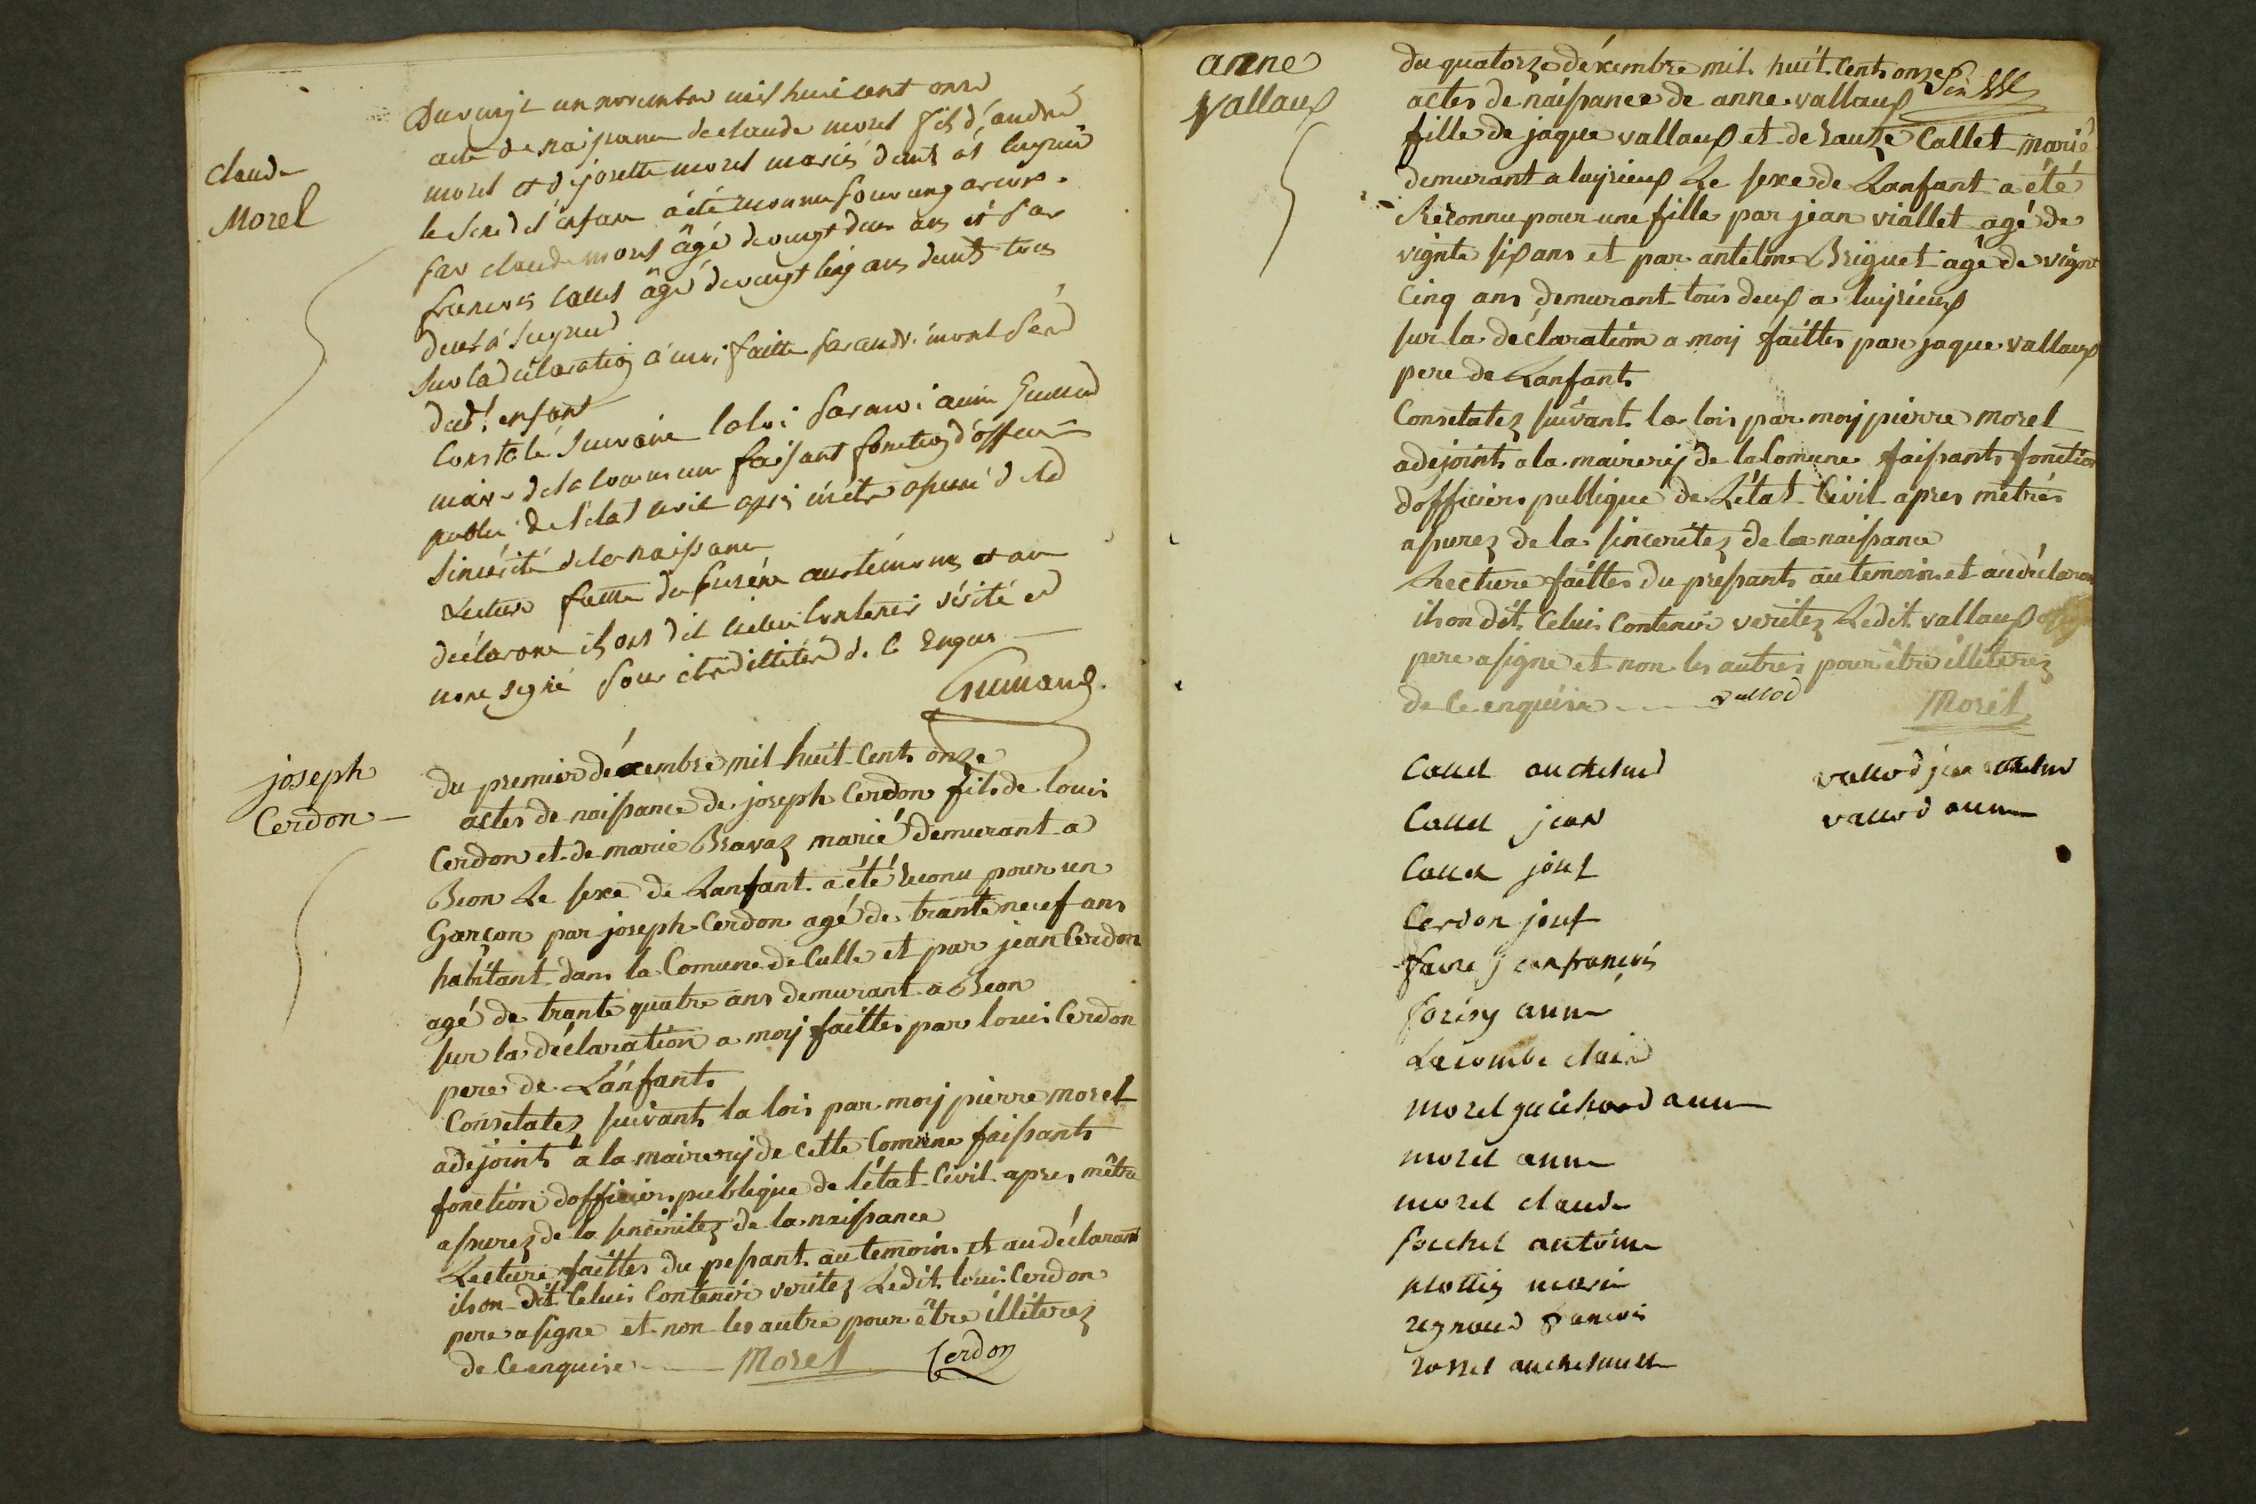 claude
Morel
Du vingt un novembre mil huit cent onze
acte de naissance de claude morel fils d'andré
morel et de josette morel mariés dem.t à luyrieu
le sexe de l'enfant a été reconnu pour un garçon
par claude morel âgé de vingt deux ans et par
francois callet âgé de vingt cinq ans dem.t tous
deux à luyrieu
sur la déclaration à moi faitte par andré morel père
dud.t enfant
Constaté suivant la loi par moi
maire de la commune faisant fonction d'officier
public de l'état civil après m'etre assuré de la
sincérité de la naissance
Lecture faitte du présent aux témoins et au
déclarant ils ont dit icelui contenir vérité et
non signé pour etre illitéré de ce enquis
joseph
Cerdon
du premier décembre mil huit Cents onze
actes de naissance de joseph Cerdon fils de louis
Cerdon et de marie Bravaz marié demurant a
Beon Le sexe de Lanfant a été reconu pour un
Garçon par joseph Cerdon agé de trante neuf ans
habitant dans la Comune de Culle et par jean Cerdon
agé de trante quatre ans demurant a Beon
sur la déclaration a moy faittes par louis Cerdon
pere de Lanfant
Consctatez suivant la lois par moy pierre morel
adejoint a la mairerij de cette Comune faissants
fonction dofficier publique de l'état Civil apres mêtre
assurez de la sincéritez de la naissance
Lecture faittes du pessant au temoin et au déclarant
ils on dit Celui Contenir veritez Ledit louis Cerdon
pere a signe et non les autre pour être illiterez
de Ce enquise Morel Cerdon
anne
vallaux
du quatorze décembre mil huit Cents onze
actes de naissance de anne vallaux
fille de jaque vallaux et de Lauze Callet marié
demurant a luyrieux Le sexe de Lanfant a été
Réconnu pour une fille par jean viallet agé de
vignte six ans et par antelme Briguet agé de vignt
Cinq ans demurant tous deux a luyrieux
sur la déclaration a moy faittes par jaque vallaux
pere de Lanfant
Consctatez suivant la lois par moy pierre morel
adejoint a la mairerij de la Comune faissants fonction
dofficier publique de L'état Civil apres mêtres
assurez de la sinceritez de la naissance
Lecture faittes du pressant au temoin et au déclarant
ils on dit Celui Contenir veritez Ledit vallaux
pere a signe et non les autres pour être illiterez
de Ce enquise vallod Morel
Callet anthelmed
vallod jean anthelmd
Callet jean
vallod anne
Callet josef
Cerdon josef
favre jean francois
forésy anne
Lacombe clair
morel guichard anne
morel anne
morel claude
pochet antoine
plottin marie
regnaud francois
rosset anthelmette